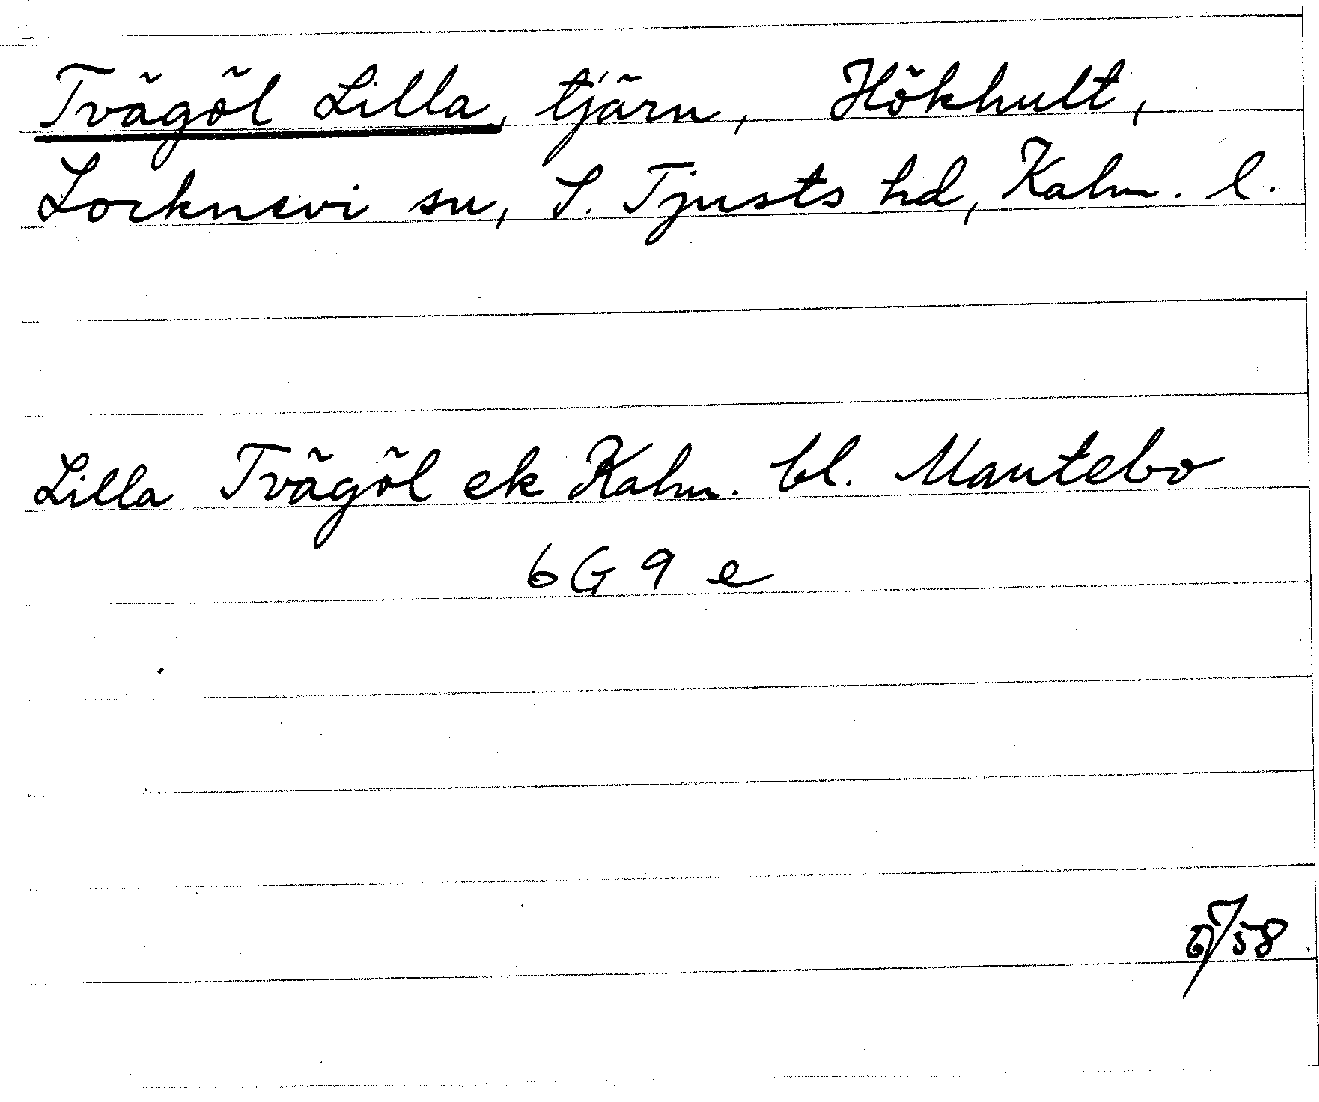 Tvägöl Lilla, tjärn, Hökhult,
Locknevi sn, S. Tjusts hd, Kalm. l.
Lilla Tvägöl ek Kalm. bl. Mantebo
6G 9 e
/58